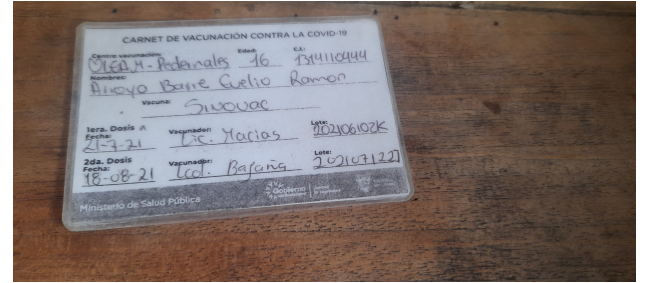 CARNET DE VACUNACIÓN CONTRA LA COVID-19
Centro vacunación: ULEAM - Pedernales Edad: 16 C.I.: 1314110444
Nombres: Arroyo Barre Euelio Ramon
Vacuna: Sinovac
1era. Dosis Fecha: 21-7-21 Vacunador: Lic. Macias Lote: 202106102K
2da. Dosis Fecha: 18-08-21 Vacunador: Lcd. Lote: 202107122
Ministerio de Salud Pública Gobierno